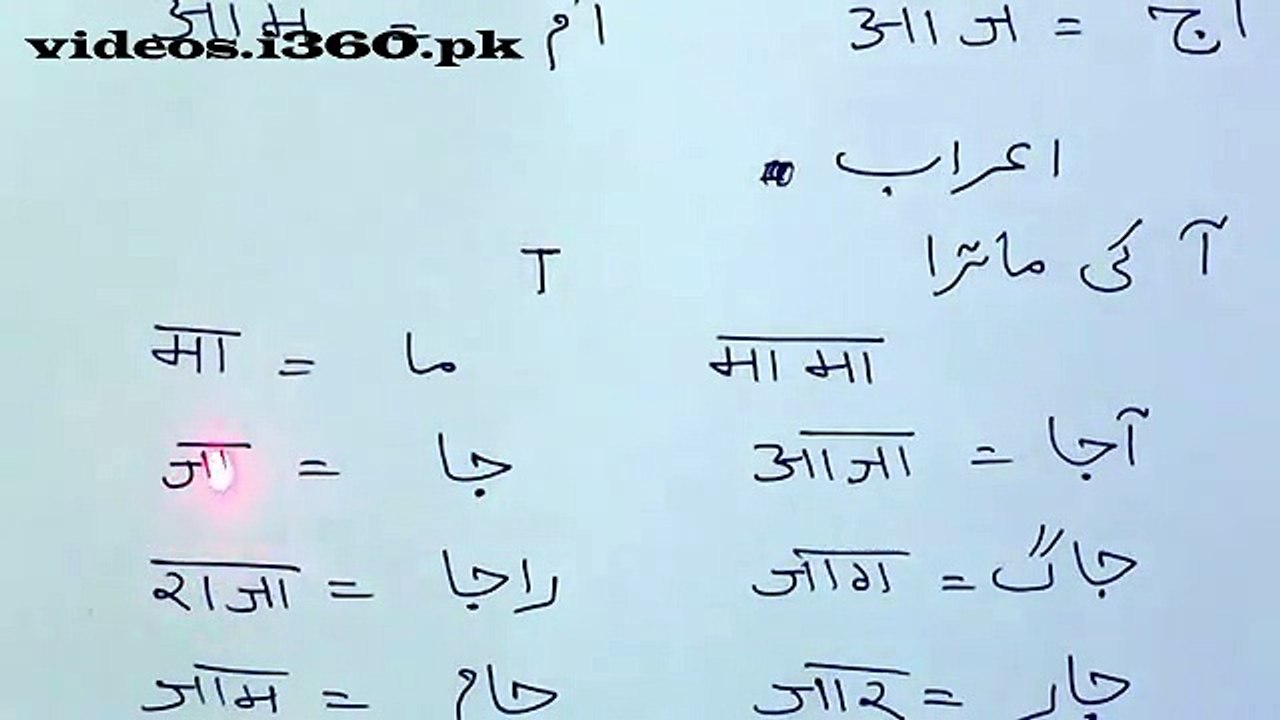 आम = ام आज = اج
videos.i360.pk
اعراب
آ کی ماترا ा
मा = ما मामा
जा = جا आजा = آجا
राजा = راجا जाग = جاگ
जाम = جام जार = جار